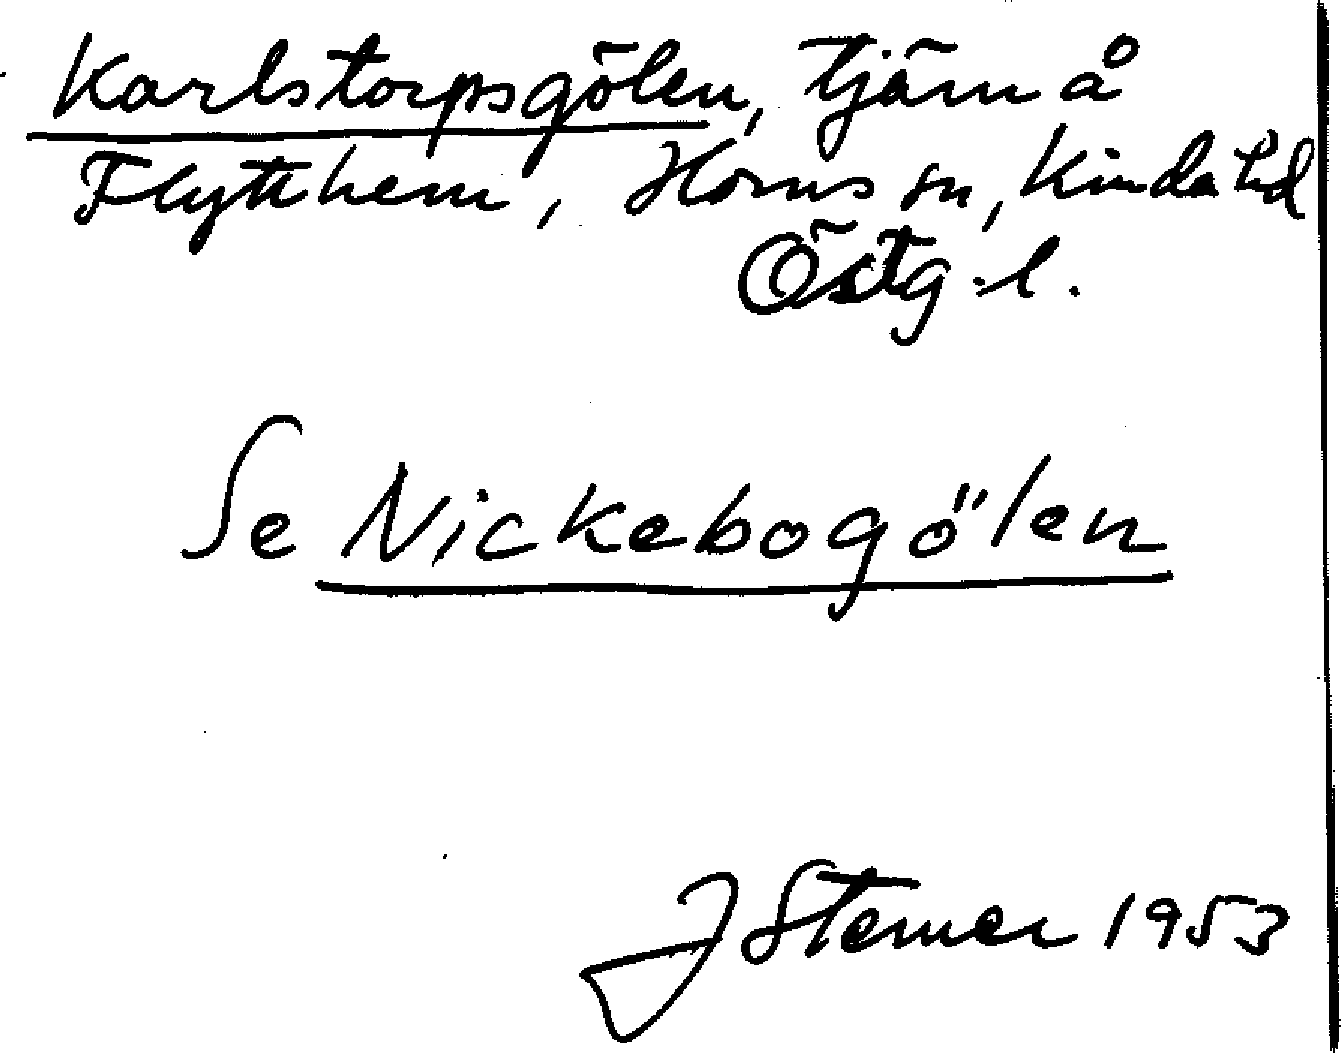 Karlstorpsgölen, tjärn å
Flytthem, Horns sn, Kinda hd
Östg. l.
Se Nickebogölen
J Sterner 1953